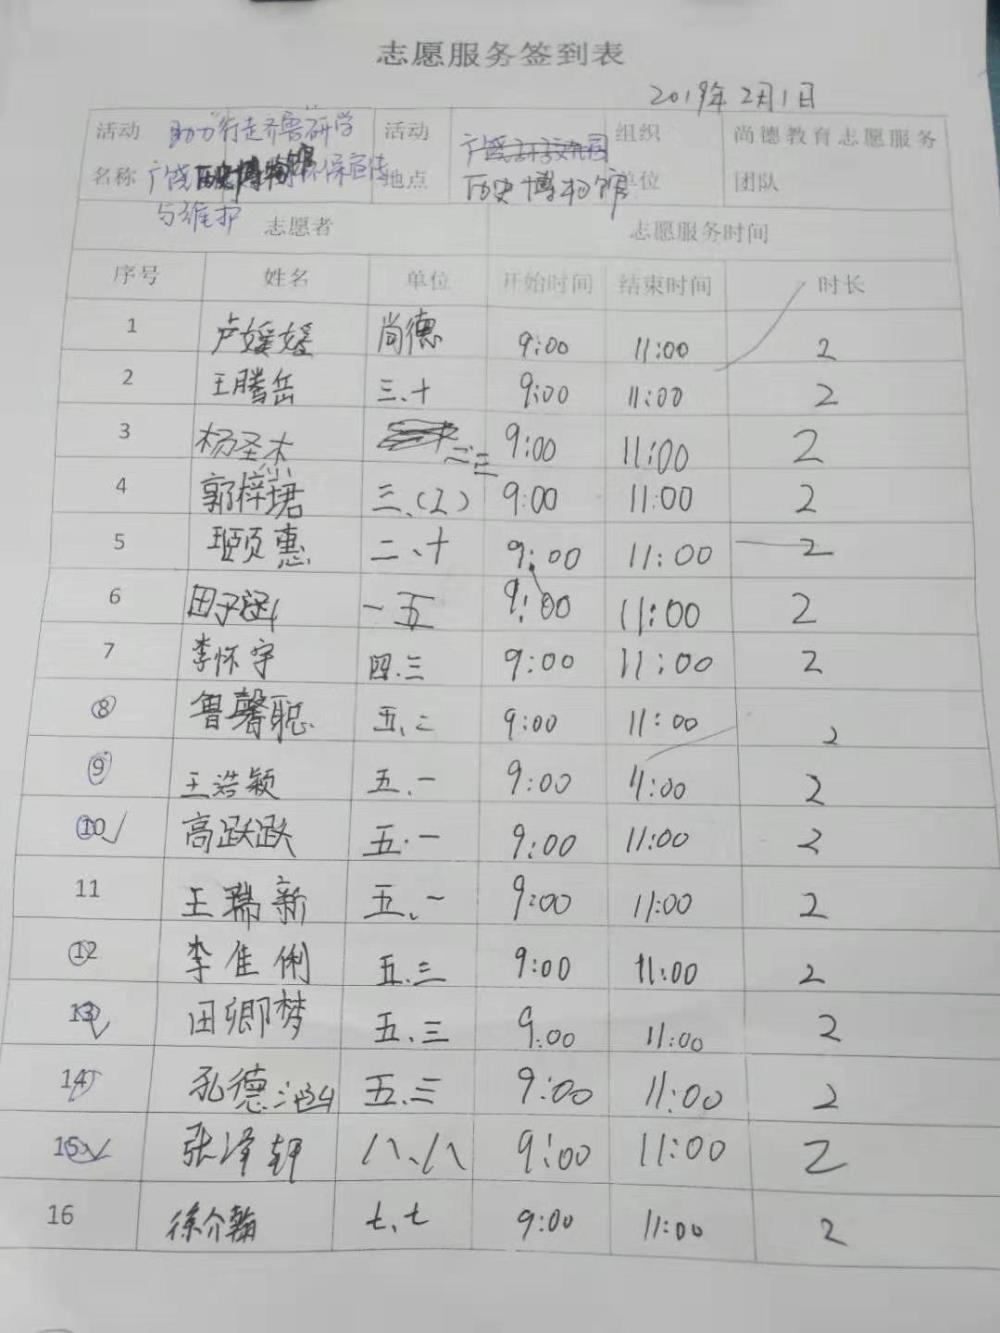 志愿服务签到表
2019年2月1日
活动 助力行走齐鲁研学 活动 组织 尚德教育志愿服务
名称 广饶历史博物馆环保宣传 地点 历史博物馆 单位 团队
与维护
志愿者 志愿服务时间
序号 姓名 单位 开始时间 结束时间 时长
1 卢媛媛 尚德 9:00 11:00 2
2 王腾岳 三.十 9:00 11:00 2
3 杨圣杰 二.三 9:00 11:00 2
4 郭梓珺 三、(2) 9:00 11:00 2
5 惠 二、十 9:00 11:00 2
6 田子涵 一五 9:00 11:00 2
7 李怀宇 四.三 9:00 11:00 2
8 鲁馨聪 五.二 9:00 11:00 2
9 王浩颖 五.一 9:00 11:00 2
10 高跃跃 五.一 9:00 11:00 2
11 王瑞新 五、一 9:00 11:00 2
12 李佳俐 五.三 9:00 11:00 2
13 田卿梦 五.三 9:00 11:00 2
14 孔德涵 五.三 9:00 11:00 2
15 张泽轩 八、八 9:00 11:00 2
16 徐介翰 七、七 9:00 11:00 2